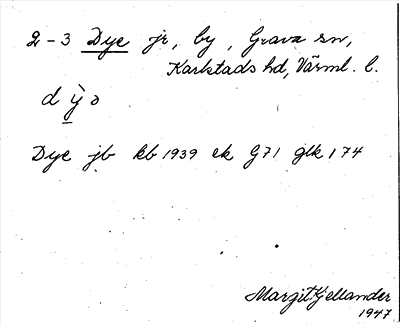 2-3 Dye jr, by, Grava sn,
Karlstads hd, Värml. l.
d ỳ ə
Dye jb kb 1939 ek G71 glk 174
Margit Kjellander
1947